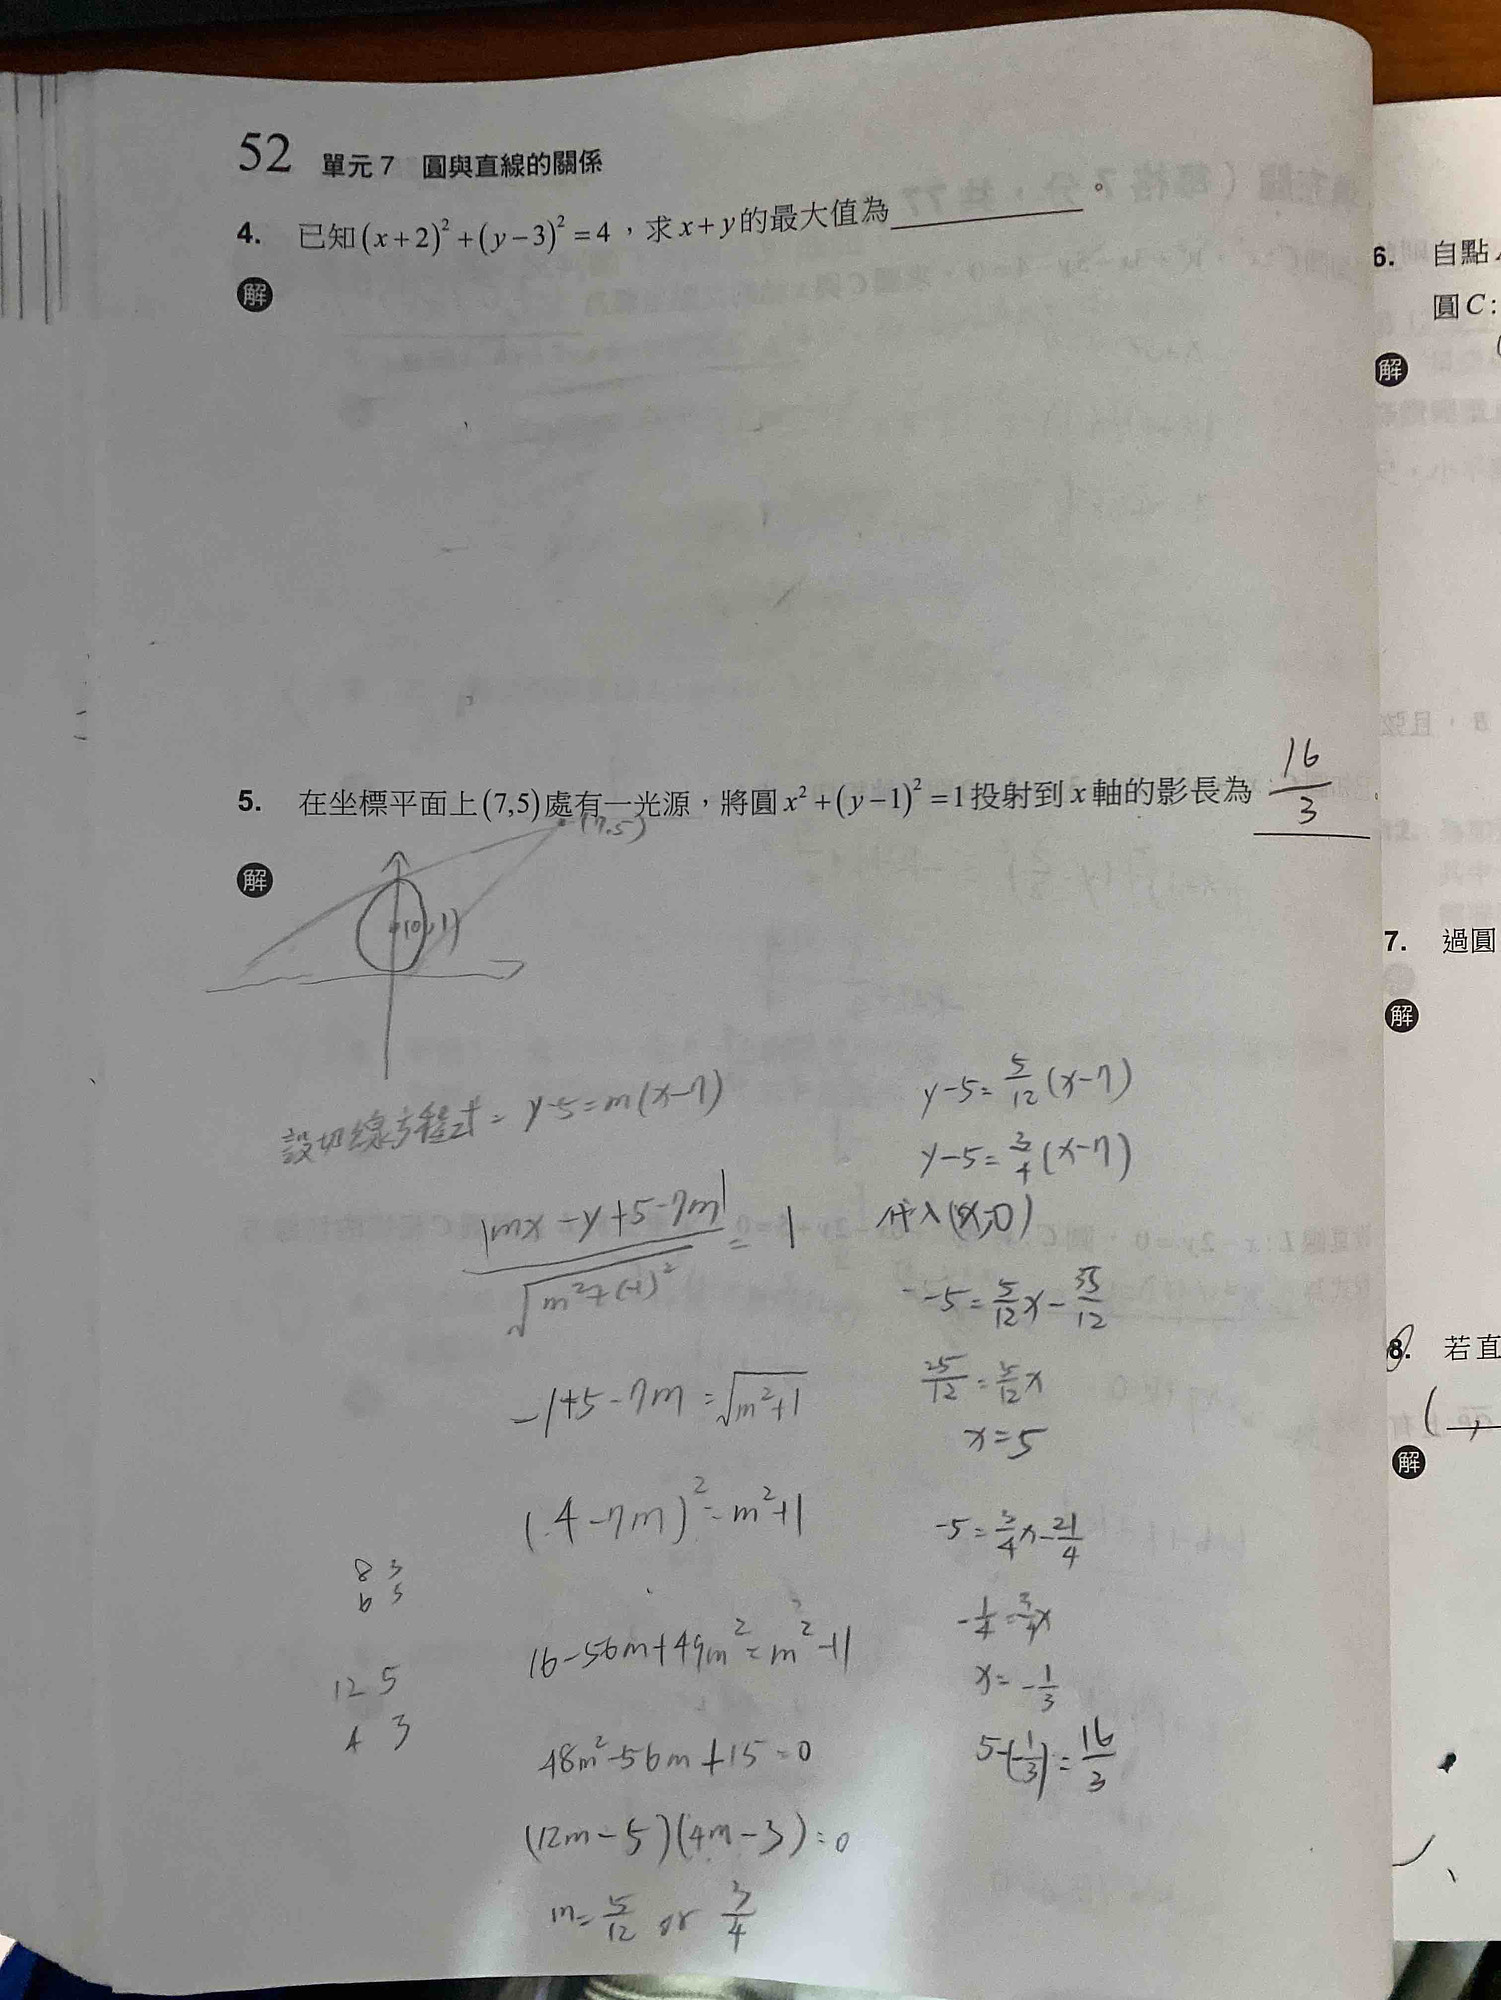 52 單元 7 圓與直線的關係
4. 已知(x+2)²+(y−3)²=4，求x+y的最大值為________。
解
5. 在坐標平面上(7,5)處有一光源，將圓x²+(y−1)²=1投射到x軸的影長為 16/3 .
(7.5)
解
(0,1)
設切線方程式= y-5=m(x-7)
|mx-y+5-7m| / √(m²+(-1)²) = 1
-1+5-7m=√(m²+1)
(4-7m)²=m²+1
8 3
6 5
16-56m+49m²=m²+1
12 5
4 3
48m²-56m+15=0
(12m-5)(4m-3)=0
m=5/12 or 3/4
y-5=5/12(x-7)
y-5=3/4(x-7)
代入(x,0)
-5=5/12x-35/12
-25/12=5/12x
x=5
-5=3/4x-21/4
-1/4=3/4x
x=-1/3
5-(-1/3)=16/3
6. 自點
圓C:
解
7. 過圓
解
8. 若直
( ,
解